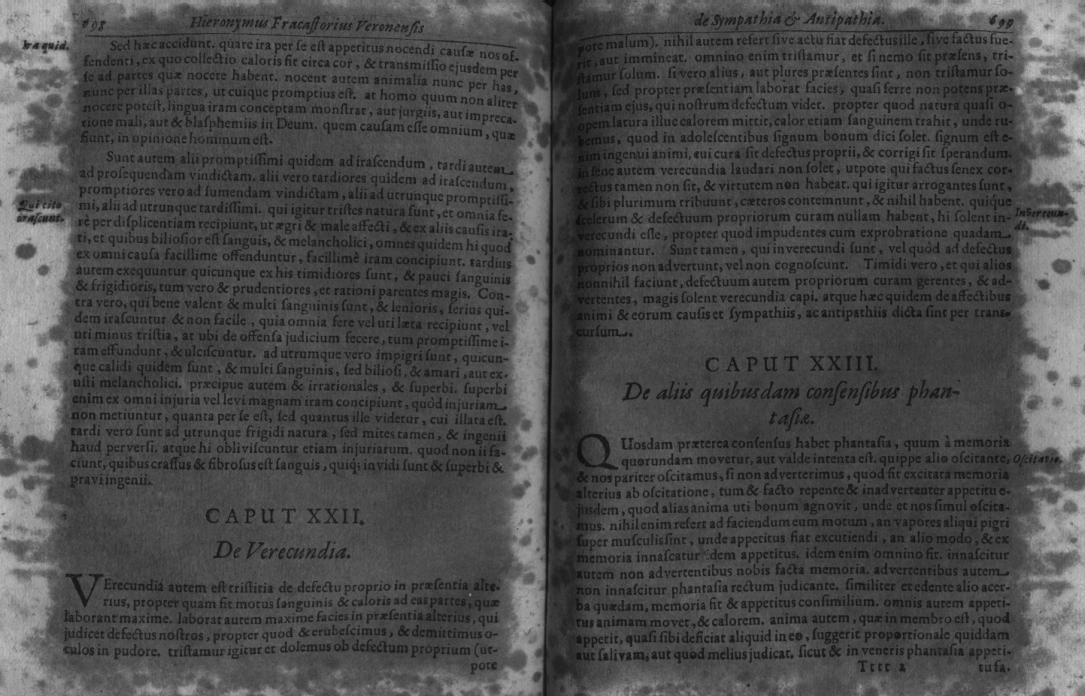 698 Hieronymus Fracastorius Veronensis
Ira quid.
Sed hæc accidunt. quare ira per se est appetitus nocendi causæ nos of-
fendenti, ex quo collectio caloris fit circa cor, & transmissio ejusdem per
se ad partes quæ nocere habent. nocent autem animalia nunc per has,
nunc per illas partes, ut cuique promptius est. at homo quum non aliter
nocere potest, lingua iram conceptam monstrat, aut jurgiis, aut impreca-
tione mali, aut & blasphemiis in Deum. quem causam esse omnium, quæ
fiunt, in opinione hominum est.
Sunt autem alii promptissimi quidem ad irascendum, tardi autem
ad prosequendam vindictam. alii vero tardiores quidem ad irascendum,
promptiores vero ad sumendam vindictam, alii ad utrunque promptissi-
Qui cito
irascunt.
mi, alii ad utrunque tardissimi. qui igitur tristes natura sunt, et omnia fe-
rè per displicentiam recipiunt, ut ægri & male affecti, & ex aliis causis ira-
ti, et quibus biliosior est sanguis, & melancholici, omnes quidem hi quod
ex omni causa facillime offenduntur, facillimè iram concipiunt. tardius
autem exequuntur quicunque ex his timidiores sunt, & pauci sanguinis
& frigidioris, tum vero & prudentiores, et rationi parentes magis. Con-
tra vero, qui bene valent & multi sanguinis sunt, & lenioris, serius qui-
dem irascuntur & non facile, quia omnia fere vel uti læta recipiunt, vel
uti minus tristia, at ubi de offensa judicium fecere, tum promptissime i-
ram effundunt, & ulciscuntur. ad utrumque vero impigri sunt, quicun-
que calidi quidem sunt, & multi sanguinis, sed biliosi, & amari, aut ex-
usti melancholici. præcipue autem & irrationales, & superbi. superbi
enim ex omni injuria vel levi magnam iram concipiunt, quòd injuriam
non metiuntur, quanta per se est, sed quantus ille videtur, cui illata est.
tardi vero sunt ad utrunque frigidi natura, sed mites tamen, & ingenii
haud perversi. atque hi obliviscuntur etiam injuriarum. quod non ii fa-
ciunt, quibus crassus & fibrosus est sanguis, quiq; invidi sunt & superbi &
pravi ingenii.
CAPUT XXII.
De Verecundia.
VErecundia autem est tristitia de defectu proprio in præsentia alte-
rius, propter quam fit motus sanguinis & caloris ad eas partes, quæ
laborant maxime. laborat autem maxime facies in præsentia alterius, qui
judicet defectus nostros, propter quod & erubescimus, & demittimus o-
culos in pudore. tristamur igitur et dolemus ob defectum proprium (ut-
pote
de Sympathia & Antipathia. 699
pote malum). nihil autem refert sive actu fiat defectus ille, sive factus fue-
rit, aut immineat. omnino enim tristamur, et si nemo sit præsens, tri-
stamur solum. si vero alius, aut plures præsentes sint, non tristamur so-
lum, sed propter præsentiam laborat facies, quasi ferre non potens præ-
sentiam ejus, qui nostrum defectum videt. propter quod natura quasi o-
opem latura illuc calorem mittit, calor etiam sanguinem trahit, unde ru-
bemus, quod in adolescentibus signum bonum dici solet. signum est e-
nim ingenui animi, cui cura sit defectus proprii, & corrigi sit sperandum.
in sene autem verecundia laudari non solet, utpote qui factus senex cor-
rectus tamen non sit, & virtutem non habeat. qui igitur arrogantes sunt,
& sibi plurimum tribuunt, cæteros contemnunt, & nihil habent. quique
Inverecun-
di.
scelerum & defectuum propriorum curam nullam habent, hi solent in-
verecundi esse, propter quod impudentes cum exprobratione quadam
nominantur. Sunt tamen, qui inverecundi sunt, vel quòd ad defectus
proprios non advertunt, vel non cognoscunt. Timidi vero, et qui alios
nonnihil faciunt, defectuum autem propriorum curam gerentes, & ad-
vertentes, magis solent verecundia capi. atque hæc quidem de affectibus
animi & eorum causis et sympathiis, ac antipathiis dicta sint per trans-
cursum.
CAPUT XXIII.
De aliis quibusdam consensibus phan-
tasiæ.
QUosdam præterea consensus habet phantasia, quum à memoria
quorundam movetur, aut valde intenta est. quippe alio oscitante,
Oscitatio.
& nos pariter oscitamus, si non adverterimus, quòd fit excitata memoria
alterius ab oscitatione, tum & facto repente & inadvertenter appetitu e-
jusdem, quod alias anima uti bonum agnovit, unde et nos simul oscita-
mus. nihil enim refert ad faciendum eum motum, an vapores aliqui pigri
super musculis sint, unde appetitus fiat excutiendi, an alio modo, & ex
memoria innascatur idem appetitus. idem enim omnino fit. innascitur
autem non advertentibus nobis facta memoria. advertentibus autem
non innascitur phantasia rectum judicante. similiter et edente alio acer-
ba quædam, memoria fit & appetitus consimilium. omnis autem appeti-
tus animam movet, & calorem. anima autem, quæ in membro est, quod
appetit, quasi sibi deficiat aliquid in eo, suggerit proportionale quiddam
aut salivam, aut quod melius judicat. sicut & in veneris phantasia appeti-
Tttt 2 tusa.